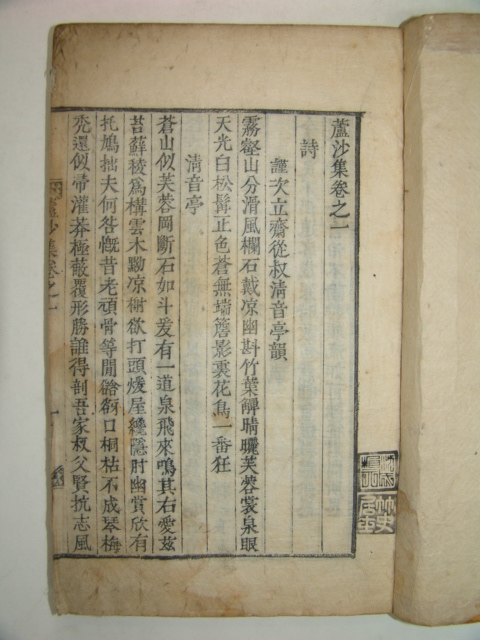 蘆沙集卷之一
詩
謹次立齋從叔清音亭韻
霧壑山分滑風欄石戴凉幽斟竹葉觶晴曬芙蓉裳泉眼
天光白松髯正色蒼無端簷影裏花鳥一番狂
清音亭
蒼山似芙蓉岡斷石如斗爰有一道泉飛來鳴其右愛玆
苔蘚稜爲構雲木黝凉樹欲打頭煖屋纔隱肘幽賞欣有
托鳩拙夫何咎慨昔老頑骨等閒谽谺口桐枯不成琴梅
禿還似帚灌莽極蔽覆形勝誰得剖吾家叔父賢抗志風
蘆沙集卷之一